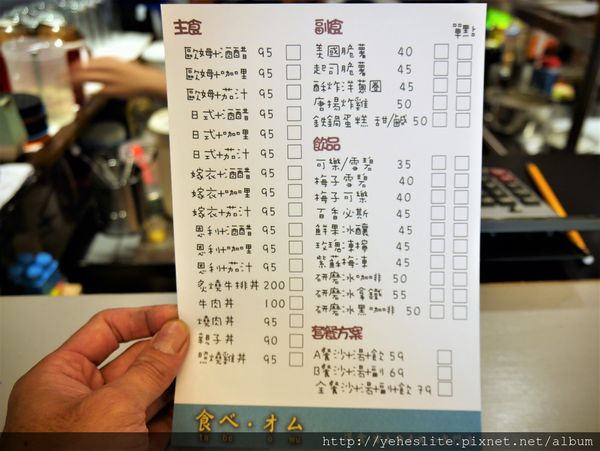 主食
歐姆+酒醋 95
歐姆+咖哩 95
歐姆+茄汁 95
日式+酒醋 95
日式+咖哩 95
日式+茄汁 95
嫁衣+酒醋 95
嫁衣+咖哩 95
嫁衣+茄汁 95
恩利+酒醋 95
恩利+咖哩 95
恩利+茄汁 95
炙燒牛排丼 200
牛肉丼 100
燒肉丼 95
親子丼 90
照燒雞丼 95
副食
單點
美國脆薯 40
起司脆薯 45
酥炸洋蔥圈 45
唐揚炸雞 50
鉄鍋蛋糕 甜/鹹 50
飲品
可樂/雪碧 35
梅子雪碧 40
梅子可樂 40
百香必斯 45
鮮果冰釀 45
玫瑰凍檸 45
紫蘇梅凍 45
研磨冰咖啡 50
研磨冰拿鐵 55
研磨冰黑咖啡 50
套餐方案
A餐沙+湯+飲 59
B餐沙+湯+副 69
全餐沙+湯+副+飲 79
食べ・オム
ta be o mu
http://yeheslite.pixnet.net/album